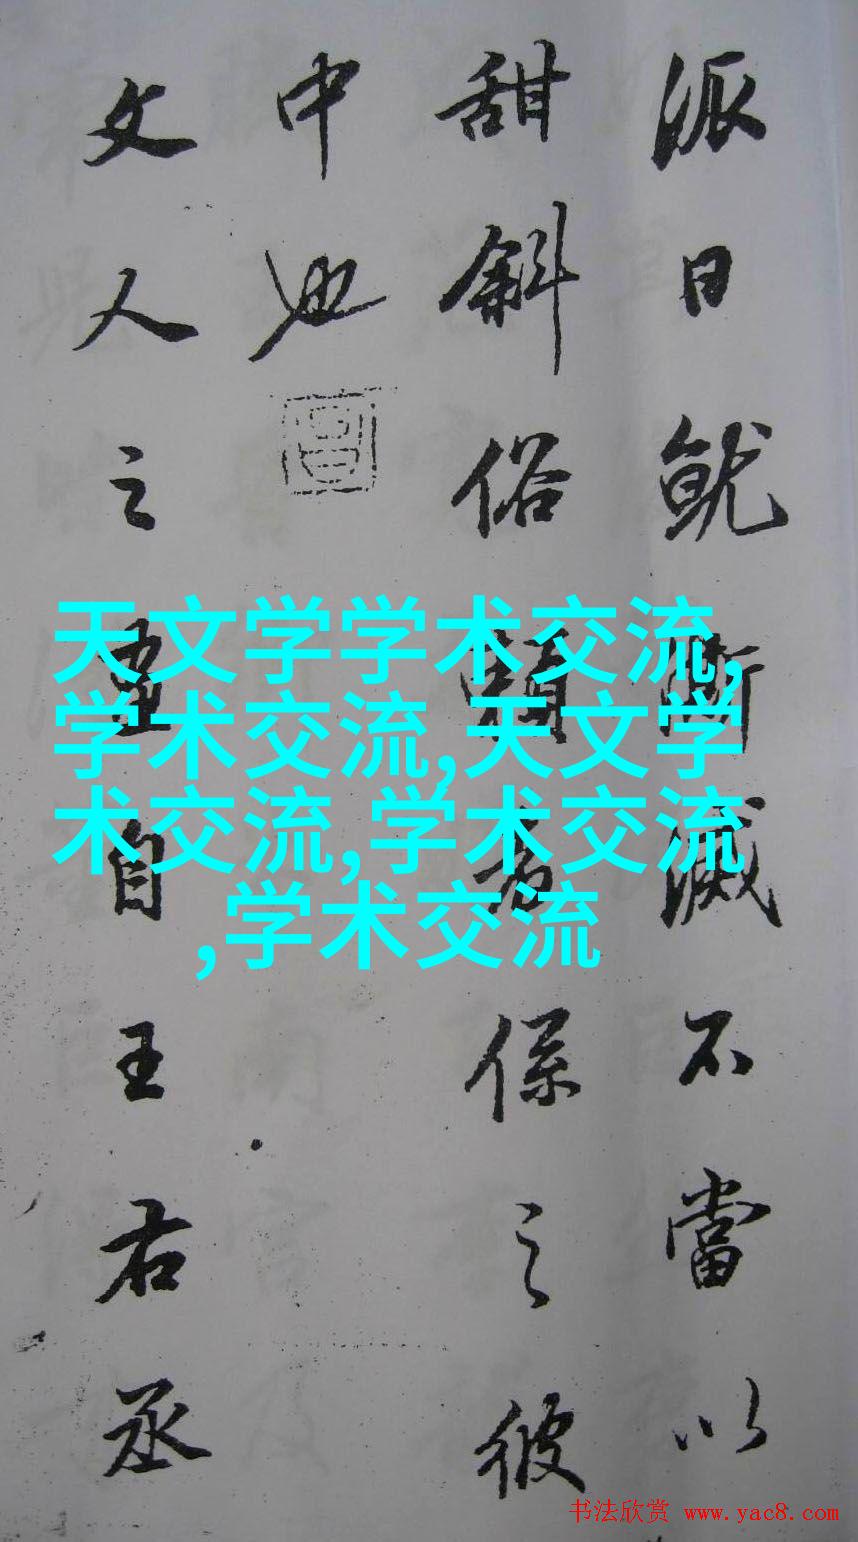 派日就澌滅不當以
甜斜俗賴者係之彼
中也
文人之畫自王右丞
天文学学术交流,
学术交流,天文学
术交流,学术交流
,学术交流
书法欣赏 www.yac8.com